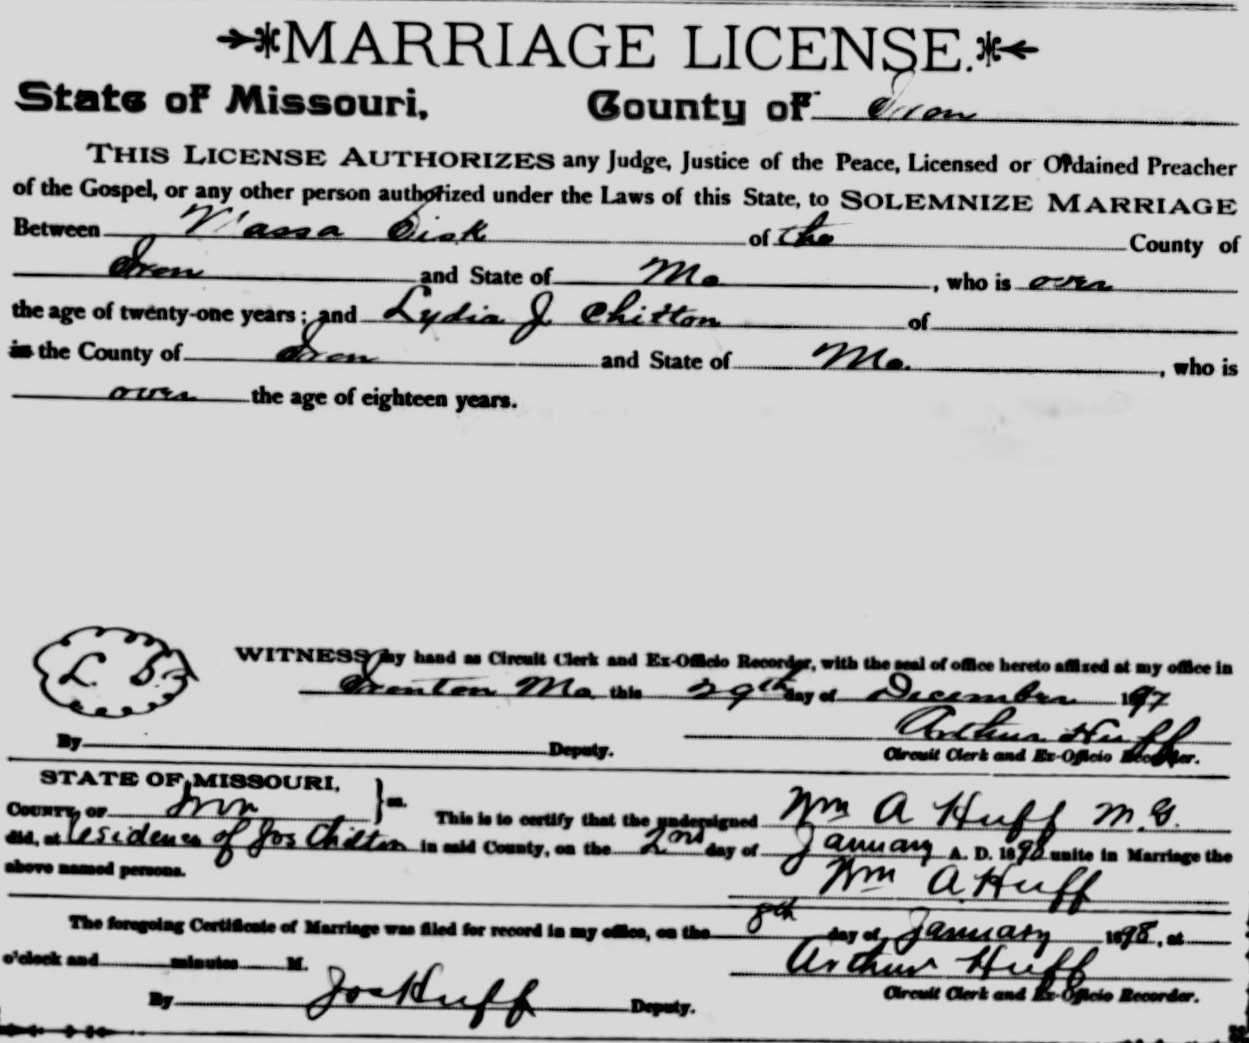 MARRIAGE LICENSE.
State of Missouri, County of Iron
THIS LICENSE AUTHORIZES any Judge, Justice of the Peace, Licensed or Ordained Preacher
of the Gospel, or any other person authorized under the Laws of this State, to SOLEMNIZE MARRIAGE
Between Massa Sisk of the County of
Iron and State of Mo , who is over
the age of twenty-one years; and Lydia J Chilton of
in the County of Iron and State of Mo. , who is
over the age of eighteen years.
L. S. WITNESS my hand as Circuit Clerk and Ex-Officio Recorder, with the seal of office hereto affixed at my office in
Ironton Mo. this 29th day of December 1897
Arthur Huff
By Deputy. Circuit Clerk and Ex-Officio Recorder.
STATE OF MISSOURI,
COUNTY OF Iron } ss. This is to certify that the undersigned Wm A Huff M.G.
did, at residence of Jos Chilton in said County, on the 2nd day of January A. D. 1898 unite in Marriage the
above named persons. Wm A. Huff
The foregoing Certificate of Marriage was filed for record in my office, on the 8th day of January 1898, at
o'clock and minutes M. Arthur Huff
By Jos Huff Deputy. Circuit Clerk and Ex-Officio Recorder.